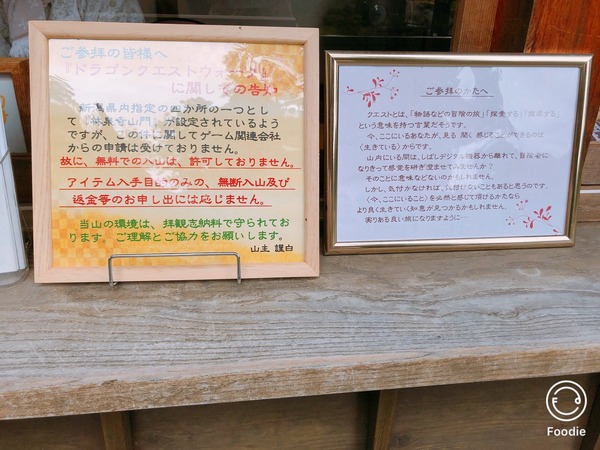 ご参拝の皆様へ
『ドラゴンクエストウォーク』
に関しての告知
新潟県内指定の四か所の一つとし
て『林泉寺山門』が設定されているよう
ですが、この件に関してゲーム関連会社
からの申請は受けておりません。
故に、無料での入山は、許可しておりません。
アイテム入手目的のみの、無断入山及び
返金等のお申し出には応じません。
当山の環境は、拝観志納料で守られてお
ります。ご理解とご協力をお願いします。
山主 謹白
ご参拝のかたへ
クエストとは、「物語などの冒険の旅」「探索する」「探求する」
という意味を持つ言葉だそうです。
今、ここにいるあなたが、見る、聞く、感じることができるのは
〈生きている〉からです。
山内にいる間は、しばしデジタル機器から離れて、冒険者に
なりきって感覚を研ぎ澄ませてみませんか?
そのことに意味などないのかもしれません。
しかし、気付かなければ、気付けないこともあると思うのです。
〈今、ここにいること〉を必然と感じて頂けるかたなら
より良く生きていく知恵が見つかるかもしれません。
実りある良い旅になりますように…
Foodie